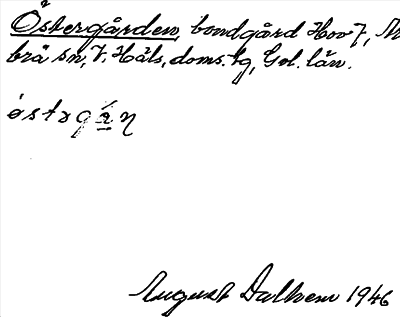 Östergården, bondgård Hov 7,
brä sn, V. Håls. doms. tg, Göt. län.
östrgạ́ṇ
August Dalhem 1946